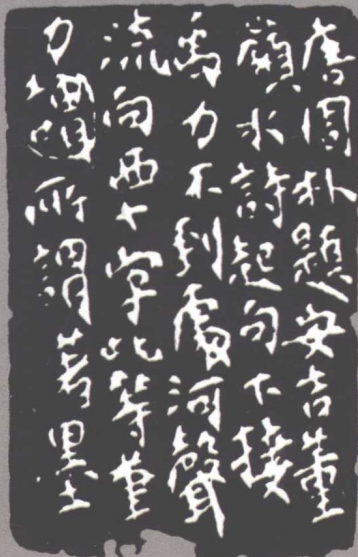 唐周朴題安吉董
嶺水詩起句下接
禹力不到處河聲
流向西十字此等筆
力所謂著墨